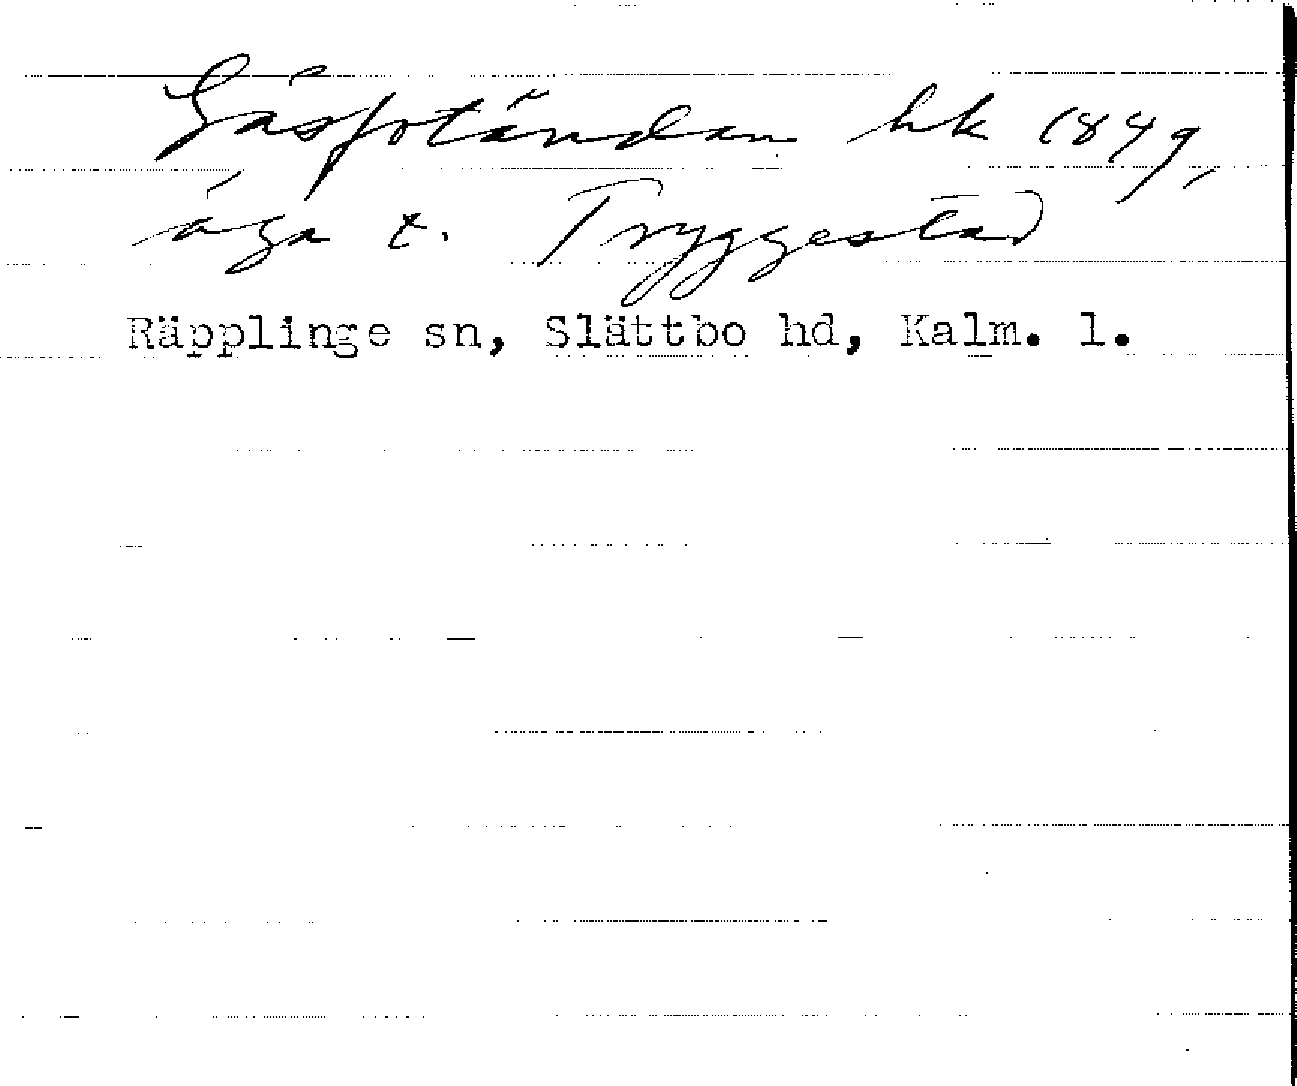 Gåsfotändan hk 1849,
äga t. Tryggestad
Räpplinge sn, Slättbo hd, Kalm. l.